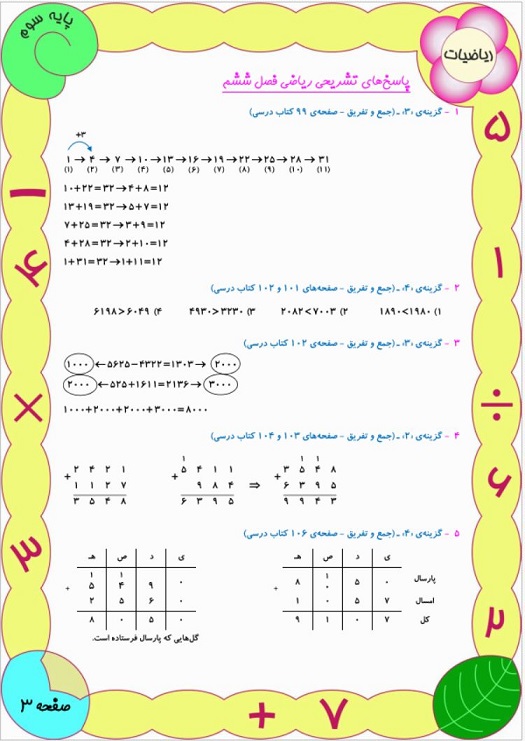 پایه سوم
ریاضیات
پاسخ‌های تشریحی ریاضی فصل ششم
۱ - گزینه‌ی «۳» ـ (جمع و تفریق - صفحه‌ی ۹۹ کتاب درسی)
+۳
۱ → ۴ → ۷ → ۱۰ → ۱۳ → ۱۶ → ۱۹ → ۲۲ → ۲۵ → ۲۸ → ۳۱
(۱) (۲) (۳) (۴) (۵) (۶) (۷) (۸) (۹) (۱۰) (۱۱)
۱۰+۲۲=۳۲→۴+۸=۱۲
۱۳+۱۹=۳۲→۵+۷=۱۲
۷+۲۵=۳۲→۳+۹=۱۲
۴+۲۸=۳۲→۲+۱۰=۱۲
۱+۳۱=۳۲→۱+۱۱=۱۲
۲ - گزینه‌ی «۴» ـ (جمع و تفریق - صفحه‌های ۱۰۱ و ۱۰۲ کتاب درسی)
۱) ۱۸۹۰<۱۹۸۰ ۲) ۲۰۸۲<۷۰۰۳ ۳) ۴۹۳۰>۳۲۳۰ ۴) ۶۱۹۸>۶۰۴۹
۳ - گزینه‌ی «۳» ـ (جمع و تفریق - صفحه‌ی ۱۰۲ کتاب درسی)
۱۰۰۰ ← ۵۶۲۵−۴۳۲۲=۱۳۰۳ → ۲۰۰۰
۲۰۰۰ ← ۵۲۵+۱۶۱۱=۲۱۳۶ → ۳۰۰۰
۱۰۰۰+۲۰۰۰+۲۰۰۰+۳۰۰۰=۸۰۰۰
۴ - گزینه‌ی «۲» ـ (جمع و تفریق - صفحه‌های ۱۰۳ و ۱۰۴ کتاب درسی)
۱ ۱ ۱
+ ۲ ۴ ۲ ۱ + ۵ ۴ ۱ ۱ + ۳ ۵ ۴ ۸
۱ ۱ ۲ ۷ ۹ ۸ ۴ ⇒ ۶ ۳ ۹ ۵
۳ ۵ ۴ ۸ ۶ ۳ ۹ ۵ ۹ ۹ ۴ ۳
۵ - گزینه‌ی «۴» ـ (جمع و تفریق - صفحه‌ی ۱۰۶ کتاب درسی)
ی د ص هـ ی د ص هـ
۱ ۱ ۱
پارسال ۸ ۰ ۵ ۰ + ۵ ۴ ۹ ۰ +
امسال ۱ ۰ ۵ ۷ ۲ ۵ ۶ ۰
کل ۹ ۱ ۰ ۷ ۸ ۰ ۵ ۰
گل‌هایی که پارسال فرستاده است.
صفحه ۳
۵
۱
÷
۶
۲
−
۴
×
۳
+ ۷